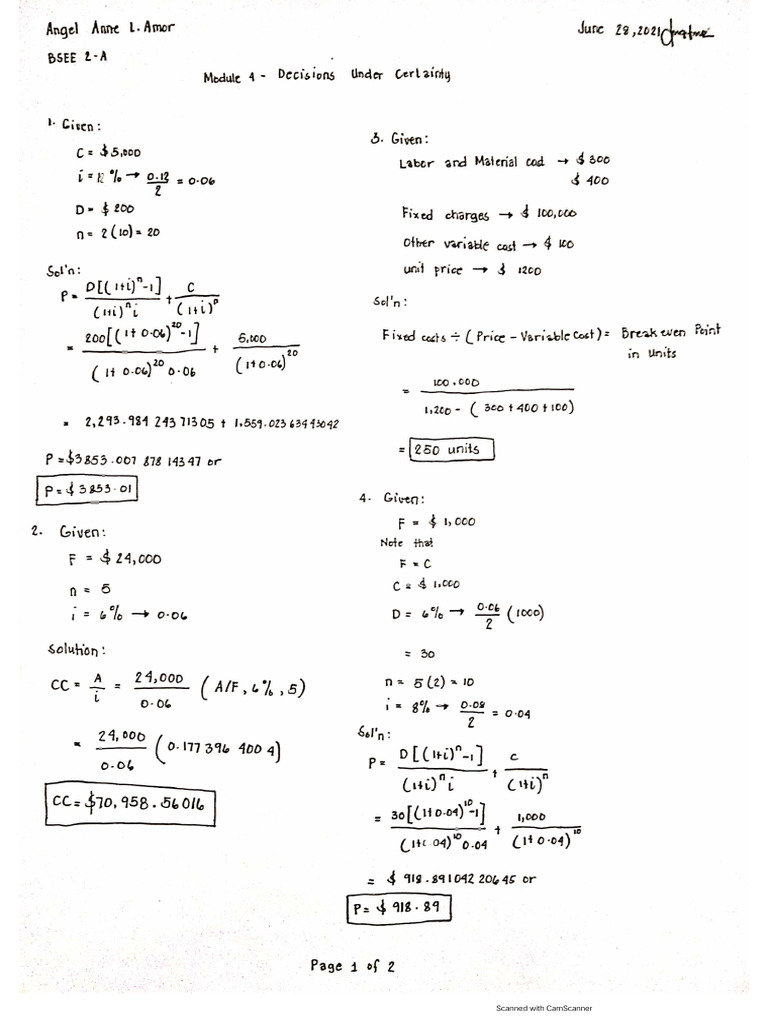 Angel Anne L. Amor
June 28, 2021
BSEE 2-A
Module 4 - Decisions Under Certainty
1. Given:
C = $5,000
i = 12 % → 0.12/2 = 0.06
D = $ 200
n = 2(10) = 20
Sol'n:
P = D[(1+i)^n -1] / (1+i)^n i + C / (1+i)^n
= 200[(1+0.06)^20 -1] / (1+0.06)^20 0.06 + 5,000 / (1+0.06)^20
= 2,293.984 243 71305 + 1,559.023 634 43042
P = $3853.007 878 14347 or
P = $ 3853.01
2. Given:
F = $ 24,000
n = 5
i = 6% → 0.06
Solution:
CC = A/i = 24,000/0.06 (A/F, 6%, 5)
= 24,000/0.06 (0.177 396 400 4)
CC = $70,958.56016
3. Given:
Labor and Material cod → $ 300
$ 400
Fixed charges → $ 100,000
Other variable cost → $ 100
unit price → $ 1200
Sol'n:
Fixed costs ÷ (Price - Variable Cost) = Break even Point
in Units
= 100,000 / 1,200 - (300 + 400 + 100)
= 250 units
4. Given:
F = $ 1,000
Note that
F = C
C = $ 1,000
D = 6% → 0.06/2 (1000)
= 30
n = 5(2) = 10
i = 8% → 0.08/2 = 0.04
Sol'n:
P = D[(1+i)^n -1] / (1+i)^n i + C / (1+i)^n
= 30[(1+0.04)^10 -1] / (1+0.04)^10 0.04 + 1,000 / (1+0.04)^10
= $ 918.891042 20645 or
P = $ 918.89
Page 1 of 2
Scanned with CamScanner